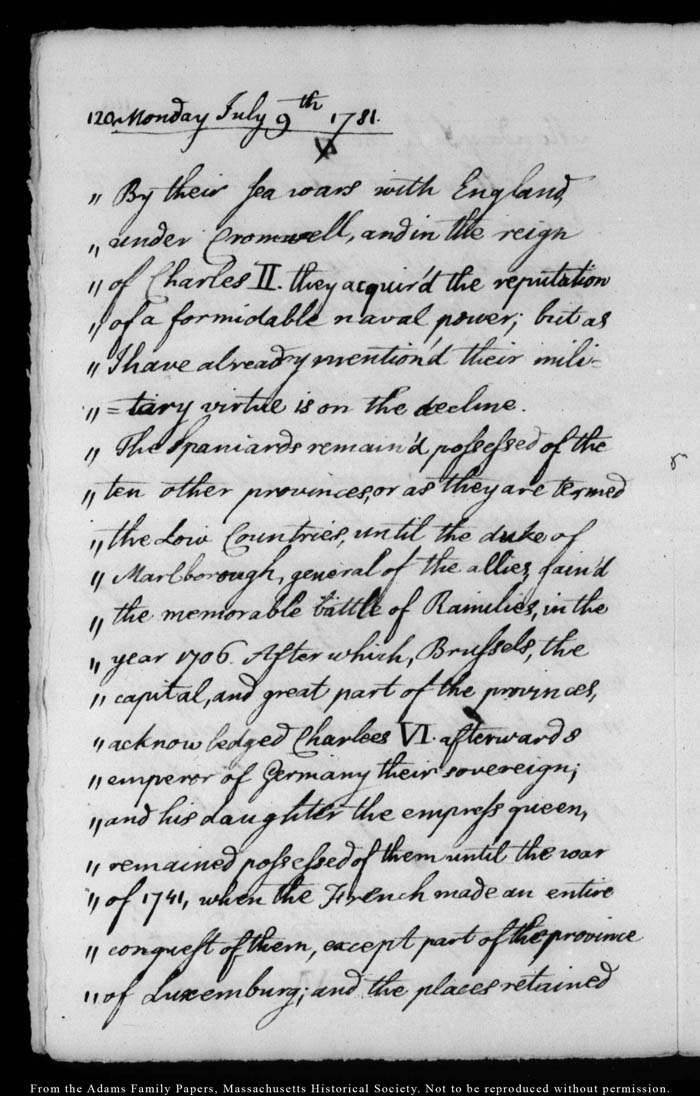 120. Monday July 9th 1781.
" By their sea wars with England,
" under Cromwell, and in the reign
" of Charles II. they acquir'd the reputation
" of a formidable naval power; but as
" I have already mention'd their mili=
" =tary virtue is on the decline.
" The Spaniards remain'd possessed of the
" ten other provinces, or as they are termed
" the Low Countries, until the duke of
" Marlborough, general of the allies, gain'd
" the memorable battle of Ramilies, in the
" year 1706. After which, Brussels, the
" capital, and great part of the provinces,
" acknowledged Charlees VI. afterwards
" emperor of Germany their sovereign;
" and his daughter the empress queen,
" remained possessed of them until the war
" of 1741, when the French made an entire
" conquest of them, except part of the province
" of Luxemburg; and the places retained
From the Adams Family Papers, Massachusetts Historical Society. Not to be reproduced without permission.